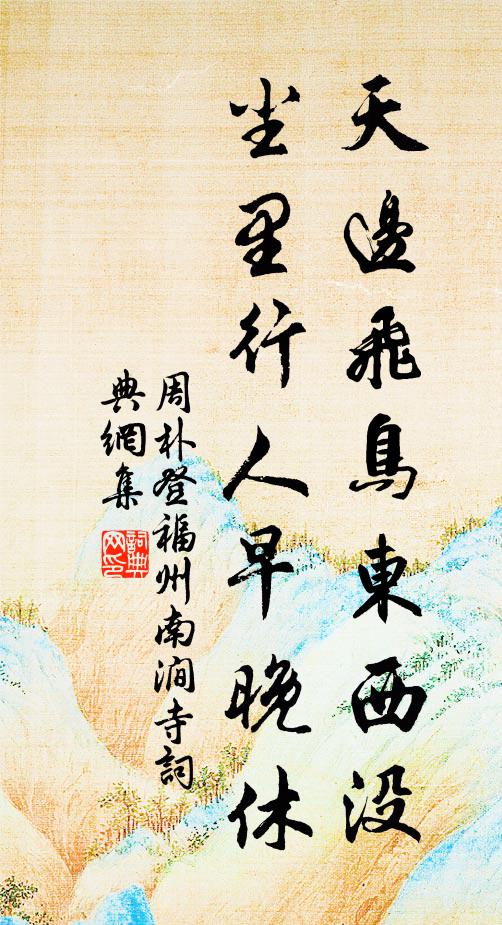 天邊飛鳥東西没
尘里行人早晚休
周朴登福州南澗寺詞
典網集
詞典
网印